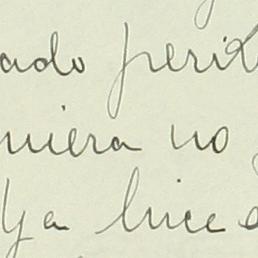 ado perid
niera no
Ya luce